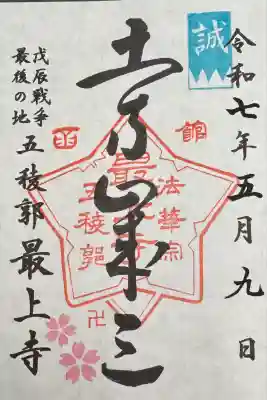 誠
令和七年五月九日
土方歳三
函館
最上寺
法華宗
五稜郭
卍
戊辰戦争
最後の地
五稜郭最上寺